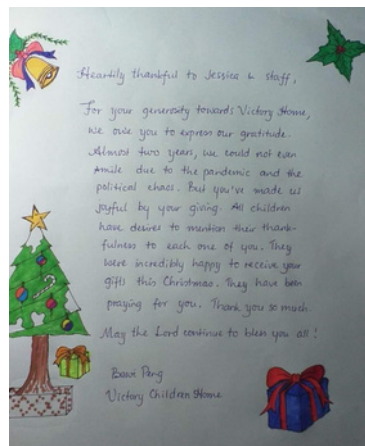 Heartily thankful to Jessica & staff,
For your generosity towards Victory Home,
we owe you to express our gratitude.
Almost two years, we could not even
smile due to the pandemic and the
political chaos. But you've made us
joyful by your giving. All children
have desires to mention their thank-
fulness to each one of you. They
were incredibly happy to receive your
gifts this Christmas. They have been
praying for you. Thank you so much.
May the Lord continue to bless you all!
Bawi Peng
Victory Children Home